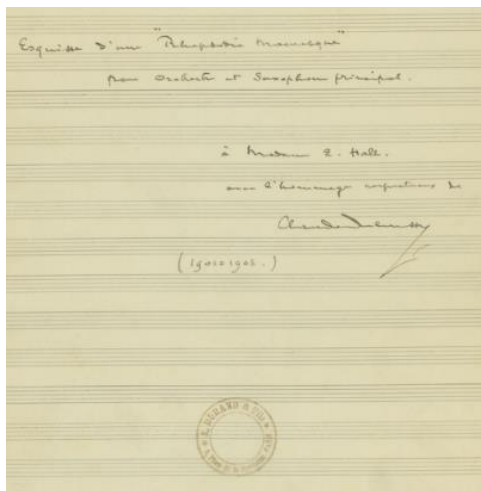 Esquisse d'une "Rhapsodie Mauresque"
pour Orchestre et Saxophone principal.
à Madame E. Hall.
avec l'hommage respectueux de
Claude Debussy
(1901-1908.)
A. DURAND & FILS